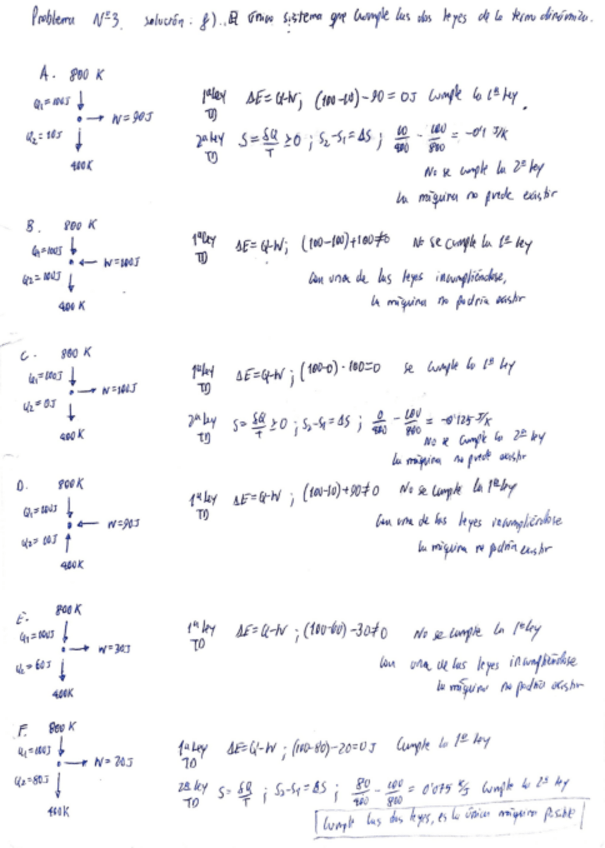 Problema Nº3. solución: f). El único sistema que cumple las dos leyes de la termodinámica.
A. 800 K
Q₁=100J
→ W=90J
Q₂=10J
400K
1ª ley TD ΔE=Q-W; (100-10)-90=0J Cumple la 1ª ley.
2ª ley TD S=δQ/T ≥0; S₂-S₁=ΔS; 10/400 - 100/800 = -0'1 J/K
No se cumple la 2ª ley
La máquina no puede existir
B. 800 K
Q₁=100J
← W=100J
Q₂=100J
400 K
1ª ley TD ΔE=Q-W; (100-100)+100≠0 No se cumple la 1ª ley
Con una de las leyes incumpliéndose,
la máquina no podría existir
C. 800 K
Q₁=100J
→ W=100J
Q₂=0J
400K
1ª ley TD ΔE=Q-W; (100-0)-100=0 se cumple la 1ª ley
2ª ley TD S=δQ/T ≥0; S₂-S₁=ΔS; 0/400 - 100/800 = -0'125 J/K
No se cumple la 2ª ley
La máquina no puede existir
D. 800K
Q₁=100J
← W=90J
Q₂=10J
400K
1ª ley TD ΔE=Q-W; (100-10)+90≠0 No se cumple la 1ª ley
Con una de las leyes incumpliéndose
la máquina no podría existir
E. 800K
Q₁=100J
→ W=30J
Q₂=60J
400K
1ª ley TD ΔE=Q-W; (100-60)-30≠0 No se cumple la 1ª ley
Con una de las leyes incumpliéndose
la máquina no podría existir
F. 800 K
Q₁=100J
→ W=20J
Q₂=80J
400K
1ª ley TD ΔE=Q-W; (100-80)-20=0J Cumple la 1ª ley
2ª ley TD S=δQ/T; S₂-S₁=ΔS; 80/400 - 100/800 = 0'075 Cumple la 2ª ley
Cumple las dos leyes, es la única máquina posible